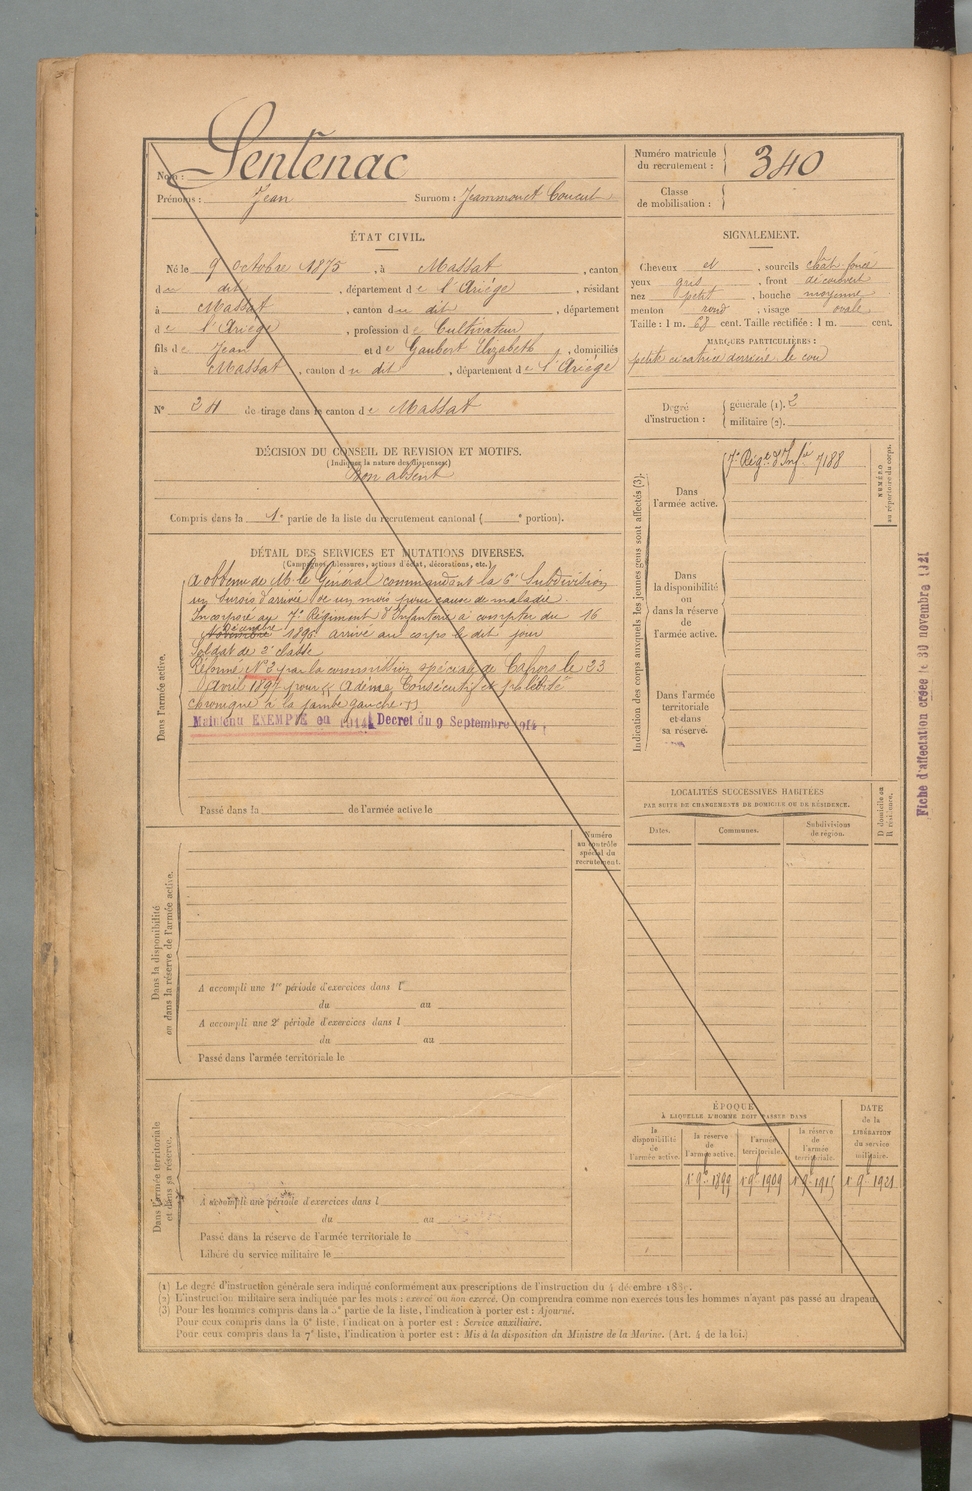 Nom : Sentenac
Prénoms : Jean Surnom : Jeammounet Coucut
Numéro matricule du recrutement : 340
Classe de mobilisation :
ÉTAT CIVIL.
Né le 9 octobre 1875, à Massat, canton
du dit, département de l'Ariège, résidant
à Massat, canton du dit, département
de l'Ariège, profession de Cultivateur
fils de Jean et de Gaubert Elizabeth, domiciliés
à Massat, canton du dit, département de l'Ariège
N° 34 de tirage dans le canton de Massat
SIGNALEMENT.
Cheveux et, sourcils chât. foncé
yeux gris, front découvert
nez petit, bouche moyenne
menton rond, visage ovale
Taille : 1 m. 68 cent. Taille rectifiée : 1 m. cent.
MARQUES PARTICULIÈRES :
petite cicatrice derrière le cou
Degré d'instruction : générale (1). 2
militaire (2).
DÉCISION DU CONSEIL DE REVISION ET MOTIFS.
(Indiquer la nature des dispenses)
Bon absent
Compris dans la 1e partie de la liste du recrutement cantonal ( e portion).
DÉTAIL DES SERVICES ET MUTATIONS DIVERSES.
(Campagnes, blessures, actions d'éclat, décorations, etc.)
Dans l'armée active.
A obtenu de M. le Général commandant la 6e Subdivision
un sursis d'arrivée de un mois pour cause de maladie.
Incorporé au 7e Régiment d'Infanterie à compter du 16
décembre
Novembre 1896 arrivé au corps le dit jour
Soldat de 2e classe
Réformé N° 2 par la commission spéciale de Cahors le 23
Avril 1897 pour « Œdème Consécutif et phlébite
chronique à la jambe gauche. »
Maintenu EXEMPTÉ en 1914 Décret du 9 Septembre 1914.
Passé dans la de l'armée active le
Indication des corps auxquels les jeunes gens sont affectés (3).
Dans l'armée active.
7e Régt d'Infie 7188
NUMÉRO au répertoire du corps.
Dans la disponibilité ou dans la réserve de l'armée active.
Dans l'armée territoriale et dans sa réserve.
Fiche d'affectation créée le 30 novembre 1921
LOCALITÉS SUCCESSIVES HABITÉES
PAR SUITE DE CHANGEMENTS DE DOMICILE OU DE RÉSIDENCE.
Dates. Communes. Subdivisions de région. D domicile ou R résidence.
Numéro au contrôle spécial du recrutement.
Dans la disponibilité ou dans la réserve de l'armée active.
A accompli une 1re période d'exercices dans l
du au
A accompli une 2e période d'exercices dans l
du au
Passé dans l'armée territoriale le
Dans l'armée territoriale et dans sa réserve.
A accompli une période d'exercices dans l
du au
Passé dans la réserve de l'armée territoriale le
Libéré du service militaire le
ÉPOQUE
À LAQUELLE L'HOMME DOIT PASSER DANS
la disponibilité de l'armée active. la réserve de l'armée active. l'armée territoriale. la réserve de l'armée territoriale. DATE de la LIBÉRATION du service militaire.
1er 9bre 1899 1er 9bre 1909 1er 9bre 1915 1er 9bre 1921
(1) Le degré d'instruction générale sera indiqué conformément aux prescriptions de l'instruction du 4 décembre
(2) L'instruction militaire sera indiquée par les mots : exercé ou non exercé. On comprendra comme non exercés tous les hommes n'ayant pas passé au drapeau.
(3) Pour les hommes compris dans la partie de la liste, l'indication à porter est : Ajourné.
Pour ceux compris dans la 6e liste, l'indication à porter est : Service auxiliaire.
Pour ceux compris dans la 7e liste, l'indication à porter est : Mis à la disposition du Ministre de la Marine. (Art. 4 de la loi.)